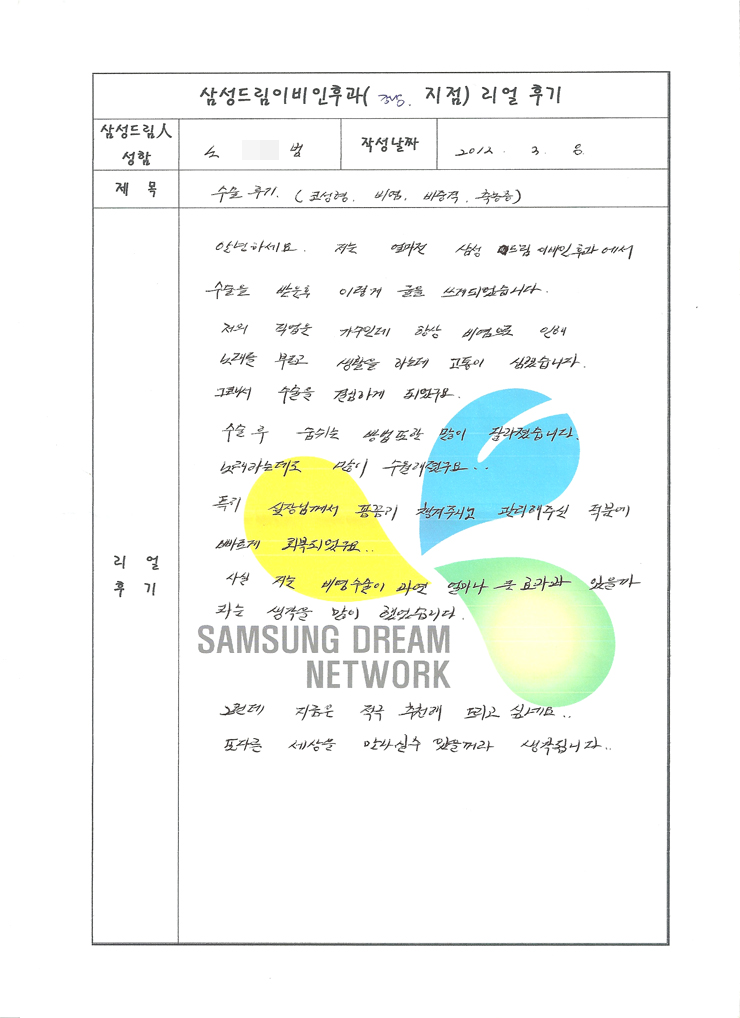 삼성드림이비인후과( 강남. 지점) 리얼 후기
삼성드림人 성함
노 범
작성날짜
2012. 3. 8.
제 목
수술 후기. (코성형, 비염, 비중격, 축농증)
리 얼 후 기
안녕하세요. 저는 얼마전 삼성 드림 이비인후과에서
수술을 받은후 이렇게 글을 쓰게되었습니다.
저의 직업은 가수인데 항상 비염으로 인해
노래를 부르고 생활을 하는데 고통이 심했습니다.
그래서 수술을 결심하게 되었구요.
수술 후 숨쉬는 방법또한 많이 달라졌습니다.
노래하는데도 많이 수월해졌구요..
특히 실장님께서 꼼꼼히 챙겨주시고 관리해주신 덕분에
빠르게 회복되었구요..
사실 저는 비염수술이 과연 얼마나 큰 효과과 있을까
라는 생각을 많이 했었습니다.
SAMSUNG DREAM
NETWORK
그런데 지금은 적극 추천해 드리고 싶네요..
또다른 세상을 만나실수 있을꺼라 생각됩니다..